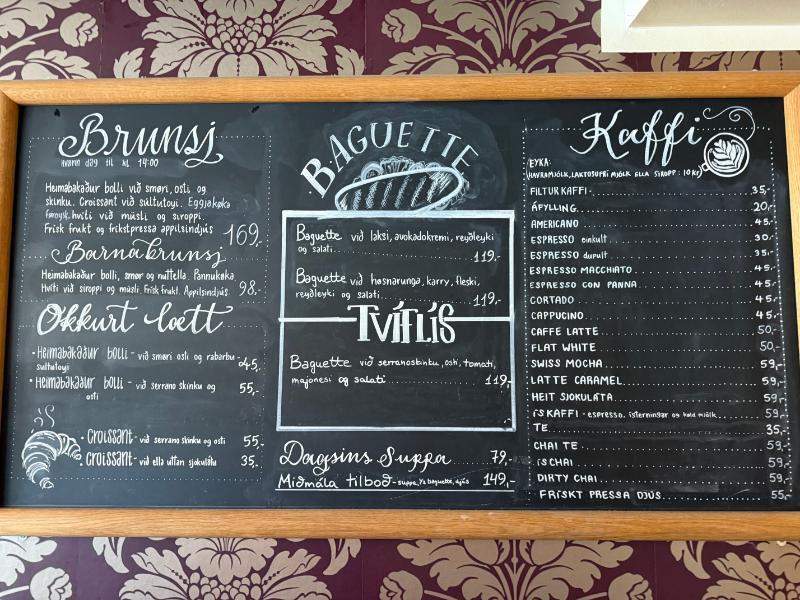 Brunsj
Hvønn dag til kl 14:00
Heimabakaður bolli við smøri, osti og
skinku. Croissant við súltutoyi. Eggjakøka
føroysk hvíti við müsli og siroppi.
Frisk frukt og friskpressa appilsindjús 169,-
Barnabrunsj
Heimabakaður bolli, smør og nuttella. Pannukøka.
Hvíti við siroppi og müsli. Frisk frukt. Appilsindjús. 98,-
Okkurt lætt
• Heimabakaður bolli - við smøri osti og rabarbu
súltutoyi 45,-
• Heimabakaður bolli - við serrano skinku og
osti 55,-
• Croissant - við serrano skinku og osti 55.-
• Croissant - við ella uttan sjokulátu 35,-
BAGUETTE
Baguette við laksi, avokadokremi, reyðleyki
og salati 119.-
Baguette við høsnarunga, karry, fleski,
reyðleyki og salati 119.-
TVÍFLÍS
Baguette við serranoskinku, osti, tomati,
majonesi og salati 119,-
Dagsins Suppa 79,-
Miðmála tilboð - suppa, ½ baguette, djús 149,-
Kaffi
EYKA:
HAVRAMJÓLK, LAKTOSUFRÍ MJÓLK ELLA SIROPP: 10 kr
FILTUR KAFFI 35,-
ÁFYLLING 20,-
AMERICANO 45,-
ESPRESSO einkult 30,-
ESPRESSO dupult 35,-
ESPRESSO MACCHIATO 45,-
ESPRESSO CON PANNA 45,-
CORTADO 45,-
CAPPUCINO 45,-
CAFFE LATTE 50,-
FLAT WHITE 50,-
SWISS MOCHA 59,-
LATTE CARAMEL 59,-
HEIT SJOKULÁTA 59,-
ÍSKAFFI - espresso, ísterningar og kald mjólk 59,-
TE 35,-
CHAI TE 59,-
ÍSCHAI 59,-
DIRTY CHAI 59,-
FRÍSKT PRESSA DJÚS 55,-